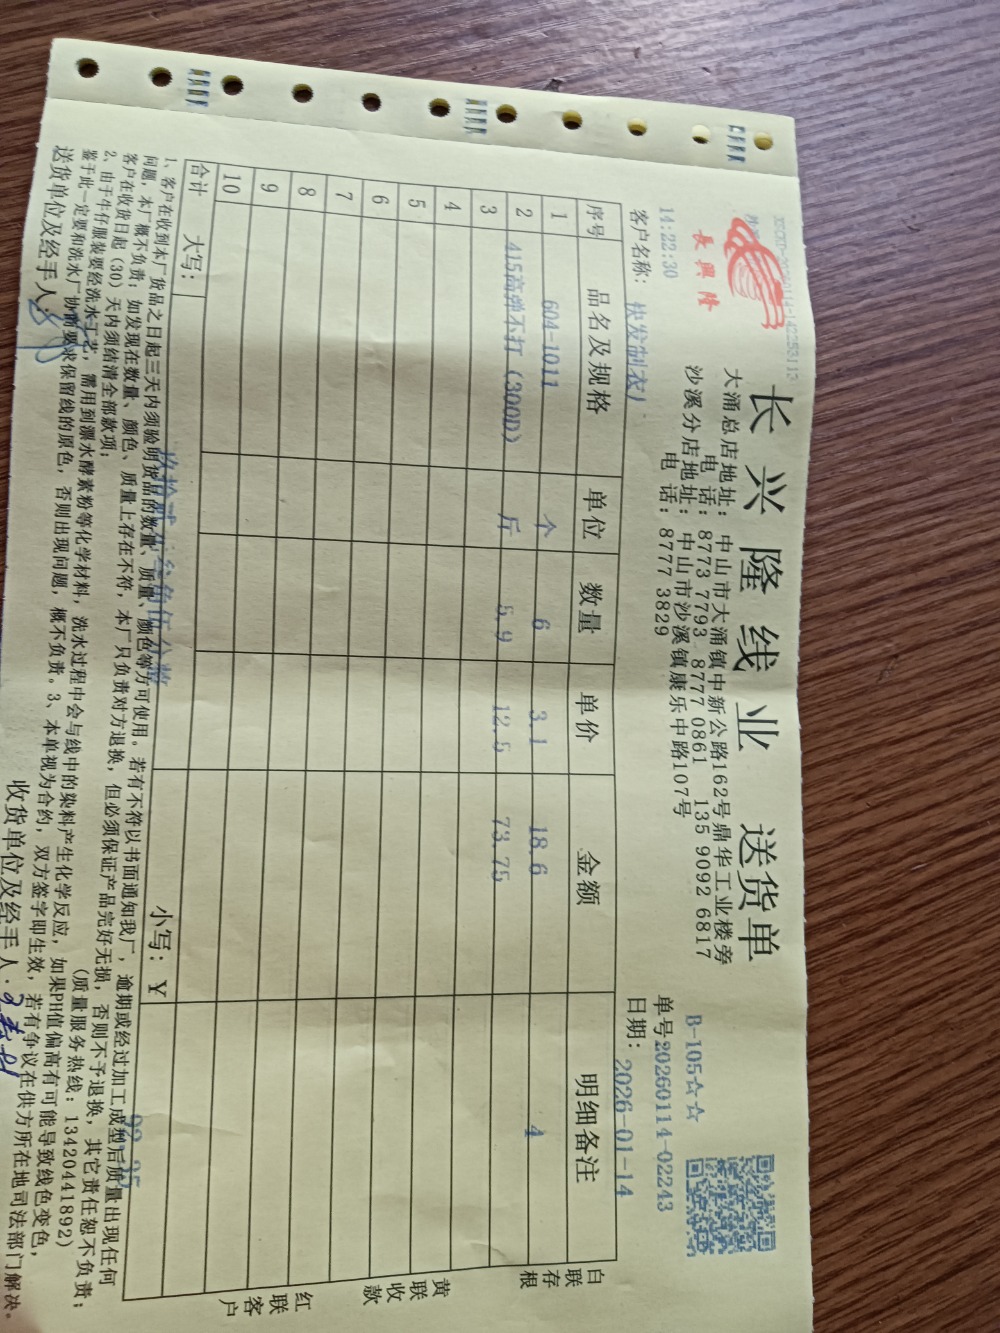 长兴隆线业 送货单
長興隆
大涌总店地址：中山市大涌镇中新公路162号鼎华工业楼旁
电 话：8773 7793 8777 0861 135 9092 6817
沙溪分店地址：中山市沙溪镇康乐中路107号
电 话：8777 3829
B-105☆☆
单号20260114-02243
14:22:30
客户名称：快发制衣厂
日期：2026-01-14
序号 品名及规格 单位 数量 单价 金额 明细备注
1 604-1011 个 6 3.1 18.6 4
2 415高弹不打（300D） 斤 5.9 12.5 73.75
3
4
5
6
7
8
9
10
合计 大写：玖拾贰 叁角伍分整 小写：￥ 92.35
白联存根
黄联收款
红联客户
1、客户在收到本厂货品之日起三天内须验明货品的数量、质量、颜色等方可使用。若有不符以书面通知我厂，逾期或经过加工成型后质量出现任何
问题，本厂概不负责；如发现在数量、颜色、质量上存在不符，本厂只负责对方退换，但必须保证产品完好无损，否则不予退换，其它责任恕不负责；
客户在收货日起（30）天内须结清全部款项； （质量服务热线：13420441892）
2、由于牛仔服装要经洗水工艺，需用到漂水酵素粉等化学材料，洗水过程中会与线中的染料产生化学反应，如果PH值偏高有可能导致线色变色，
鉴于此一定要和洗水厂协商要求保留线的原色，否则出现问题，概不负责。3、本单视为合约，双方签字即生效，若有争议在供方所在地司法部门解决。
送货单位及经手人： 收货单位及经手人：